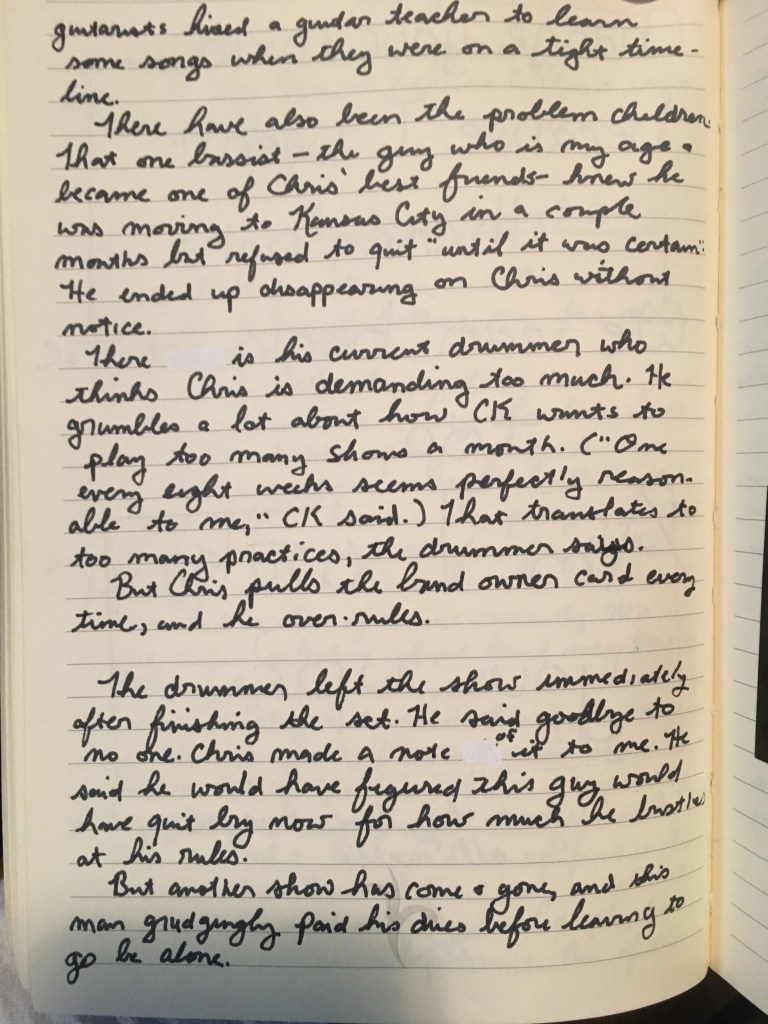 guitarists hired a guitar teacher to learn
some songs when they were on a tight time-
line.
There have also been the problem children.
That one bassist – the guy who is my age &
became one of Chris' best friends – knew he
was moving to Kansas City in a couple
months but refused to quit "until it was certain".
He ended up disappearing on Chris without
notice.
There is his current drummer who
thinks Chris is demanding too much. He
grumbles a lot about how CK wants to
play too many shows a month. ("One
every eight weeks seems perfectly reason-
able to me," CK said.) That translates to
too many practices, the drummer says.
But Chris pulls the band owner card every
time, and he over-rules.
The drummer left the show immediately
after finishing the set. He said goodbye to
no one. Chris made a note of it to me. He
said he would have figured this guy would
have quit by now for how much he bristles
at his rules.
But another show has come & gone, and this
man grudgingly paid his dues before leaving to
go be alone.